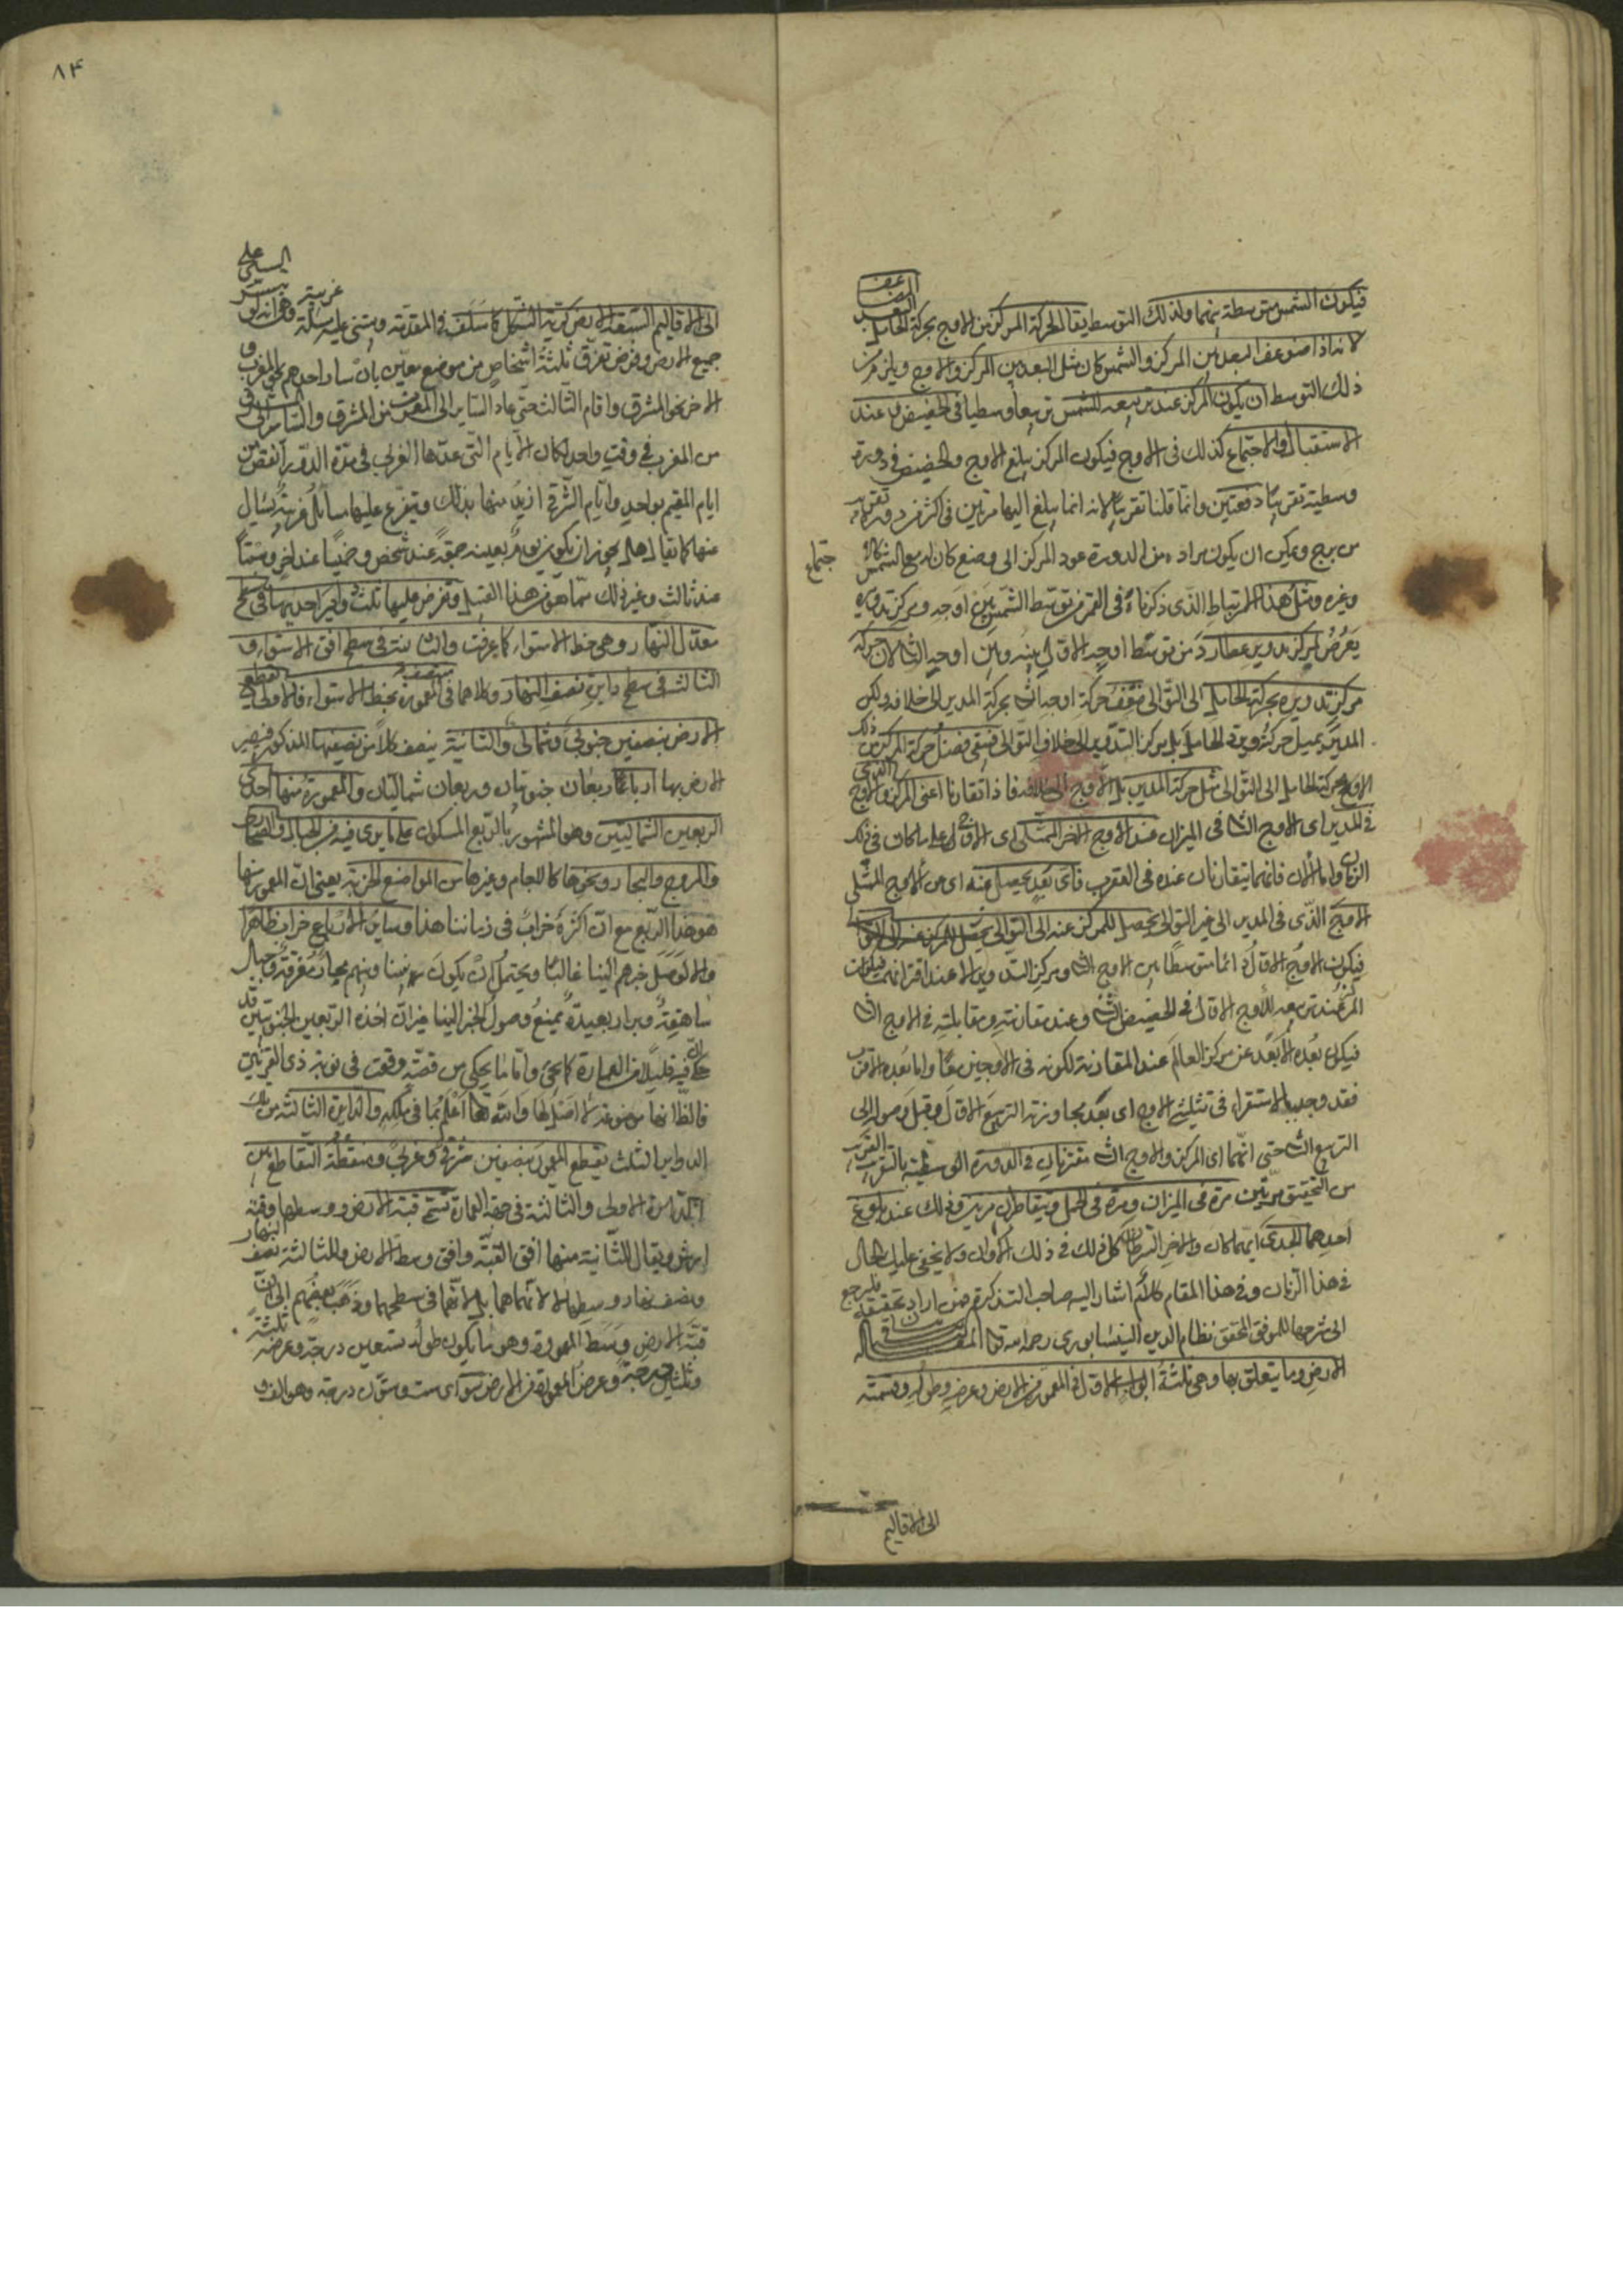 فيكون الشمس متوسطة بينهما ولذلك التوسط يقال لحركة المركز من الاوج بحركة الحامل البعد المضاعف
لانه اذا ضوعف البعد بين المركز والشمس كان مثل البعد بين المركز والاوج ويلزم من
ذلك التوسط ان يكون المركز عند تربيعه للشمس تربيعا وسطيا في الحضيض وعند
الاستقبال والاجتماع كذلك في الاوج فيكون المركز يبلغ الاوج والحضيض في دورة
وسطية تقريبا دفعتين وانما قلنا تقريبا لانه انما يبلغ اليها مرتين في اكثر من دورة
من برج ويمكن ان يكون مراده من الدورة عود المركز الى وضع كان له مع الشمس
اجتماع
وغيره ومثل هذا الارتباط الذى ذكرناه فى القمر من توسط الشمس بين اوجه ومركز تدويره
يعرض لمركز تدوير عطارد من توسط اوجه الاول بينه وبين اوجه الثانى لان حركة
مركز تدويره بحركة الحامل الى التوالى ضعف حركة اوجه الثانى بحركة المدير الى خلافه ولكن
المدير يميل حركته ويرد الحامل بل مركز التدوير الى خلاف التوالى فيبقى فضل حركة المركز
الاوج بحركة الحامل الى التوالى مثل حركة المدير بل الاوج الى خلافه فاذا تقارنا اعنى المركز والاوج الذى
فى المدير اى الاوج الثانى فى الميزان عند الاوج الاخر الممثلى اى الاول على ما كان فى ذلك
الزمان واما الان فانهما يتقارنان عنده فى العقرب فاى بعد يحصل عنه اى من الاوج الممثلى
الاوج الذى فى المدير الى غير التوالى يحصل للمركز عنه الى التوالى
فيكون الاوج الاول دائما متوسطا بين الاوج الثانى ومركز التدوير الا عند اقترانهما فيكون
المركز عند تربيعه للاوج الاول فى الحضيض الثانى وعند مقارنته ومقابلته فى الاوج الثانى
فيكون بعده الابعد عن مركز العالم عند المقارنة لكونه فى الاوجين معا واما بعده الاقرب
فقد وجد بالاستقراء فى تثليثى الاوج اى بعد مجاوزته التربيع الاول وقبل وصوله الى
التربيع الثانى حتى انهما اى المركز والاوج الثانى مقترنان فى الدورة الوسطية بالتقريب القريب
من التحقيق مرتين مرة فى الميزان ومرة فى الحمل ويتقاطران مرتين وذلك عند بلوغ
احدهما الجدى ايهما كان والاخر السرطان كل ذلك فى ذلك الاوان ولا يخفى عليك الحال
فى هذا الزمان وفى هذا المقام كلام اشار اليه صاحب التذكرة من اراد تحقيقه فليرجع
الى شرحها للموفق المحقق نظام الدين النيسابورى رحمه الله تعالى المقالة الثانية فى بيان
الارض وما يتعلق بها وهى ثلثة ابواب الاول فى المعمور من الارض وعرضه وطوله وقسمته
الى الاقاليم
٨۴
الى الاقاليم السبعة الارض كرية الشكل كما سلف فى المقدمة ويبتنى عليه مسئلة غريبة وهى انه لو تيسر السير على
جميع الارض وفرض تفرق ثلثة اشخاص من موضع معين بان سار احدهم نحو المغرب و
الاخر نحو المشرق واقام الثالث حتى عاد السائر الى المغرب من المشرق والسائر الى المشرق
من المغرب فى وقت واحد لكان الايام التى عدها الغربى فى مدة الدور انقص من
ايام المقيم بواحد وايام الشرقى ازيد منها بذلك ويتفرع عليها مسائل غريبة يسال
عنها كما يقال هل يجوز ان يكون يوم بعينه جمعة عند شخص وخميسا عند اخر وسبتا
عند ثالث وغير ذلك مما هو من هذا القبيل ونفرض عليها ثلث دوائر احديها فى سطح
معدل النهار وهى خط الاستواء كما عرفت والثانية فى سطح افق الاستواء و
الثالثة فى سطح دائرة نصف النهار وكلاهما فى منتصف المعمورة بخط الاستواء فالاولى تقطع
الارض بنصفين جنوبى وشمالى والثانية ينصف كلا من نصفيها المذكور فيصير
الارض بها ارباعا ربعان جنوبيان وربعان شماليان والمعمورة منها احدى
الربعين الشماليين وهو المشهور بالربع المسكون على ما يرى فيه من الجبال والصحارى
والمروج والبحار ونحوها كالاجام وغيرها من المواضع الخربة يعنى ان المعمور منها
هو هذا الربع مع ان اكثره خراب فى زماننا هذا وسائر الارباع خراب ظاهرا
والا لوصل خبرهم الينا غالبا ويحتمل ان يكون بيننا وبينهم بحار مغرقة وجبال
شاهقة وبرار بعيدة يمنع وصول الخبر الينا غير ان احد الربعين الجنوبيين قد
حكى فيه قليلا من العمارة كما يجئ واما ما يحكى من قصة وقعت فى نوبة ذى القرنين
فالظاهر انها موضوعة لا اصل لها والله تعالى اعلم بما فى ملكه والدائرة الثالثة من تلك
الدوائر الثلث يقطع المعمور بنصفين شرقى وغربى ونقطة التقاطع بين
الدائرة الاولى والثالثة فى جهة العمارة تسمى قبة الارض ووسطها وقبة
ارين ويقال للثانية منها افق القبة وافق وسط الارض وللثالثة نصف النهار
ونصف نهار وسطها لا لانهما هما بل لانهما فى سطحهما وذهب بعضهم الى ان
قبة الارض وسط المعمورة وهو ما يكون طوله تسعين درجة وعرضه ثلثة
وثلثين درجة وعرض المعمورة من الارض سو اى ست وستون درجة وهو الف و